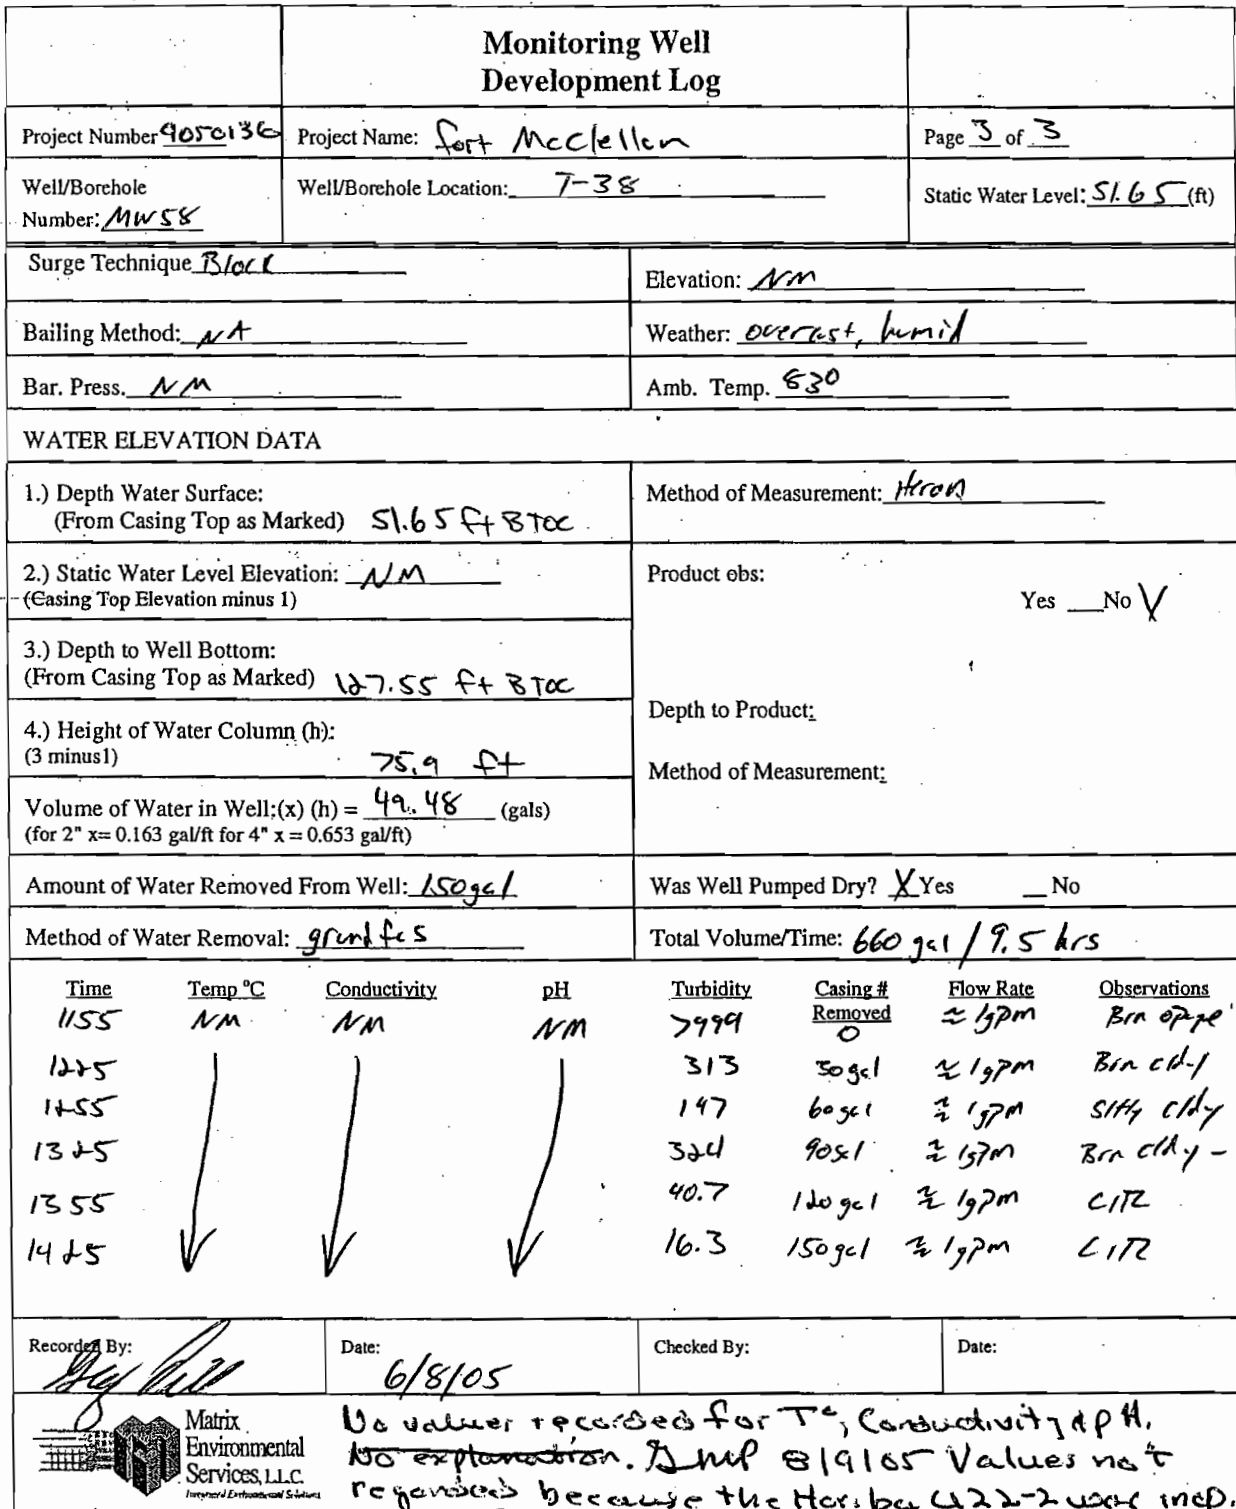 Monitoring Well
Development Log
Project Number 905013G
Project Name: Fort McClellan
Page 3 of 3
Well/Borehole
Number: MW58
Well/Borehole Location: T-38
Static Water Level: 51.65 (ft)
Surge Technique Block
Elevation: NM
Bailing Method: NA
Weather: overcast, humid
Bar. Press. NM
Amb. Temp. 83°
WATER ELEVATION DATA
1.) Depth Water Surface:
(From Casing Top as Marked) 51.65 ft BTOC
Method of Measurement: Heron
2.) Static Water Level Elevation: NM
(Casing Top Elevation minus 1)
Product obs:
Yes __No V
3.) Depth to Well Bottom:
(From Casing Top as Marked) 127.55 ft BTOC
Depth to Product:
4.) Height of Water Column (h):
(3 minus1) 75.9 ft
Method of Measurement:
Volume of Water in Well:(x) (h) = 49.48 (gals)
(for 2" x= 0.163 gal/ft for 4" x = 0.653 gal/ft)
Amount of Water Removed From Well: 150gal
Was Well Pumped Dry? X Yes __ No
Method of Water Removal: grundfos
Total Volume/Time: 660 gal / 9.5 hrs
Time Temp °C Conductivity pH Turbidity Casing # Removed Flow Rate Observations
1155 NM NM NM >999 0 ≈ 1gpm Brn opqe
1225 313 30gal ≈ 1gpm Brn cldy
1255 147 60gal ≈ 1gpm Sltly cldy
1325 324 90gal ≈ 1gpm Brn cldy -
1355 40.7 120gal ≈ 1gpm ClR
1425 16.3 150gal ≈ 1gpm ClR
Recorded By:
Date: 6/8/05
Checked By:
Date:
Matrix
Environmental
Services, L.L.C.
Integrated Environmental Solutions
No values recorded for T°, Conductivity & pH.
No explanation. 8/9/05 Values not
recorded because the Horiba U22-2 was inop.